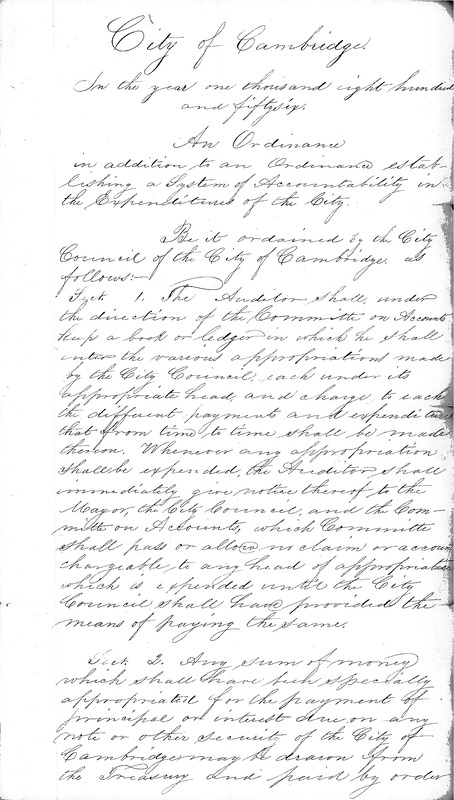 City of Cambridge.
In the year one thousand eight hundred
and fiftysix.
An Ordinance
in addition to an Ordinance estab-
lishing a System of Accountability in
the Expenditures of the City.
Be it ordained by the City
Council of the City of Cambridge, as
follows:—
Sect. 1. The Auditor shall, under
the direction of the Committe on Accounts
keep a book or ledger in which he shall
enter the various appropriations made
by the City Council, each under its
appropriate head, and charge to each
the different payments and expenditures
that from time to time shall be made
thereon. Whenever any appropriation
shall be expended, the Auditor shall
immediately give notice thereof to the
Mayor, the City Council, and the Com-
mitte on Accounts, which Committe
shall pass or allow no claim or account
chargeable to any head of appropriation
which is expended until the City
Council shall have provided the
means of paying the same.
Sect. 2. Any sum of money
which shall have been specially
appropriated for the payment of
principal or interest due on any
note or other security of the City of
Cambridge may be drawn from
the Treasury and paid by order